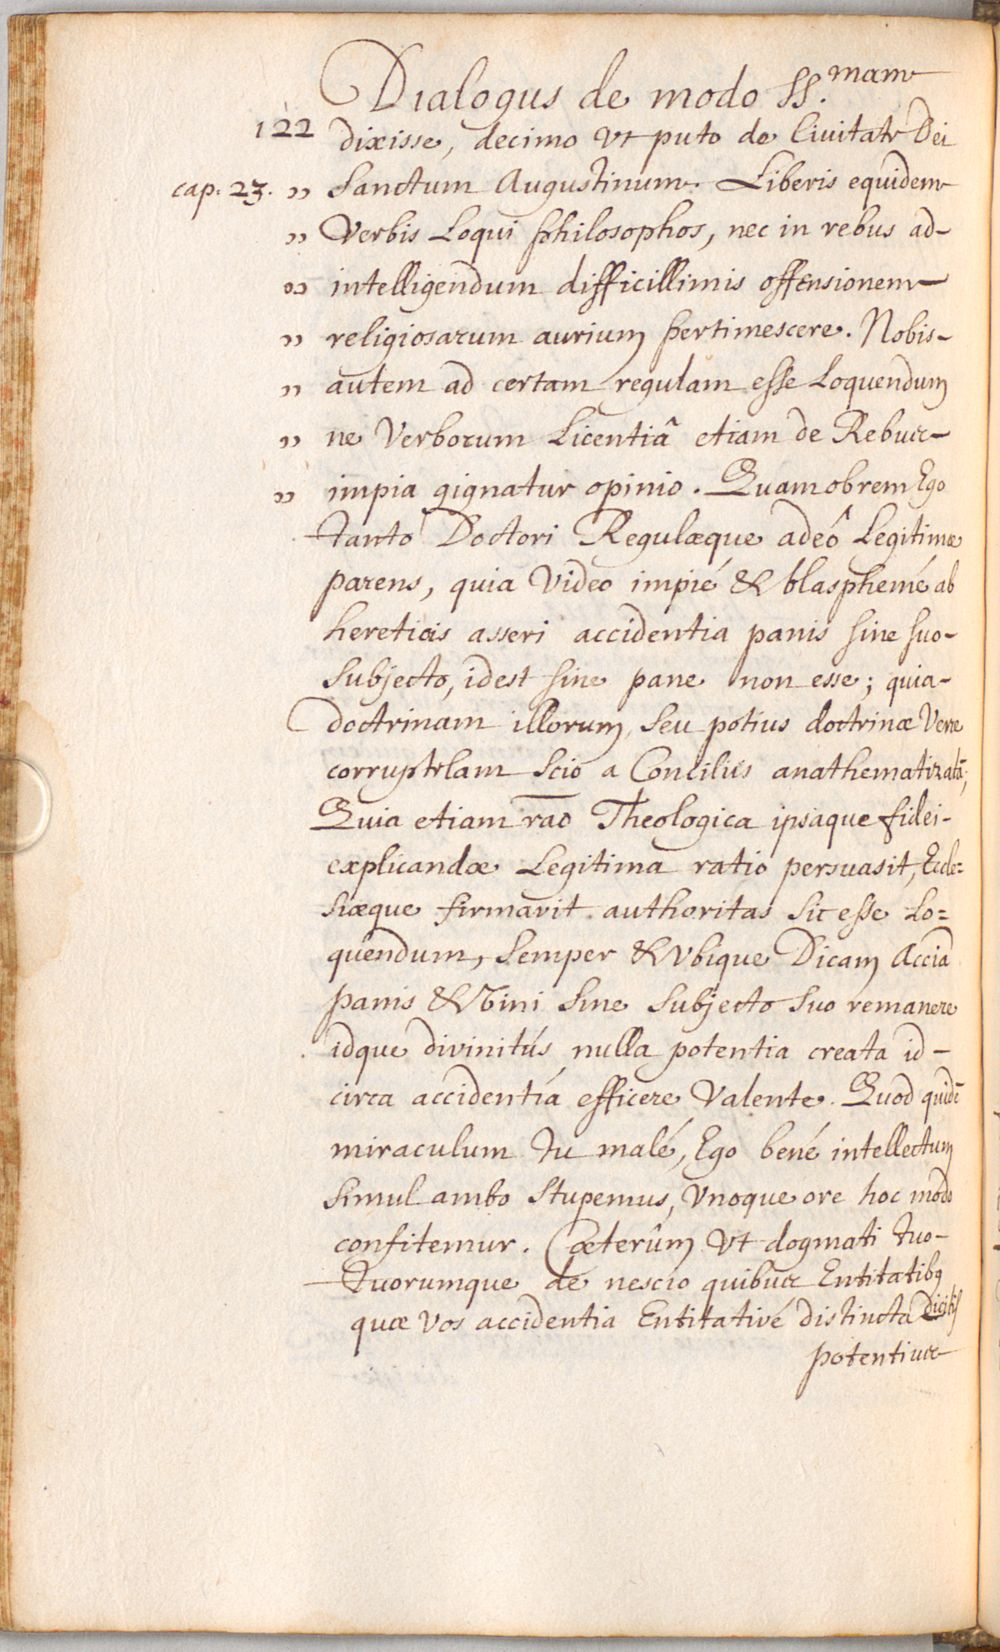 Dialogus de modo SS.mam
122
dixisse, decimo vt puto de Civitate Dei
cap. 23. " Sanctum Augustinum. Liberis equidem
" Verbis Loqui philosophos, nec in rebus ad-
" intelligendum difficillimis offensionem
" religiosarum aurium pertimescere. Nobis-
" autem ad certam regulam esse Loquendum
" ne Verborum Licentiâ etiam de Rebus-
" impia gignatur opinio. Quamobrem Ego
tanto Doctori Regulæque adeô Legitimæ
parens, quia Video impié & blasphemé ab
hereticis asseri accidentia panis sine suo-
Subjecto, idest sine pane non esse; quia-
doctrinam illorum, Seu potius doctrinæ Veræ
corruptelam Scio a Conciliis anathematizatã;
Quia etiam rao Theologica ipsaque fidei-
explicandæ Legitima ratio persuasit, Eccle=
siæque firmavit authoritas Sic esse Lo=
quendum, Semper & Vbique Dicam Accia
panis & Vini Sine Subjecto Suo remanere
idque divinitús, nulla potentia creata id-
circa accidentiá efficere Valente. Quod quidẽ
miraculum tu malé, Ego bené intellectum
Simul ambo Stupemus, Vnoque ore hoc modo
confitemur. Cæterûm Vt dogmati tuo-
tuorumque de nescio quibus Entitatibq
quæ Vos accidentia Entitativé distincta dicitis
potentius